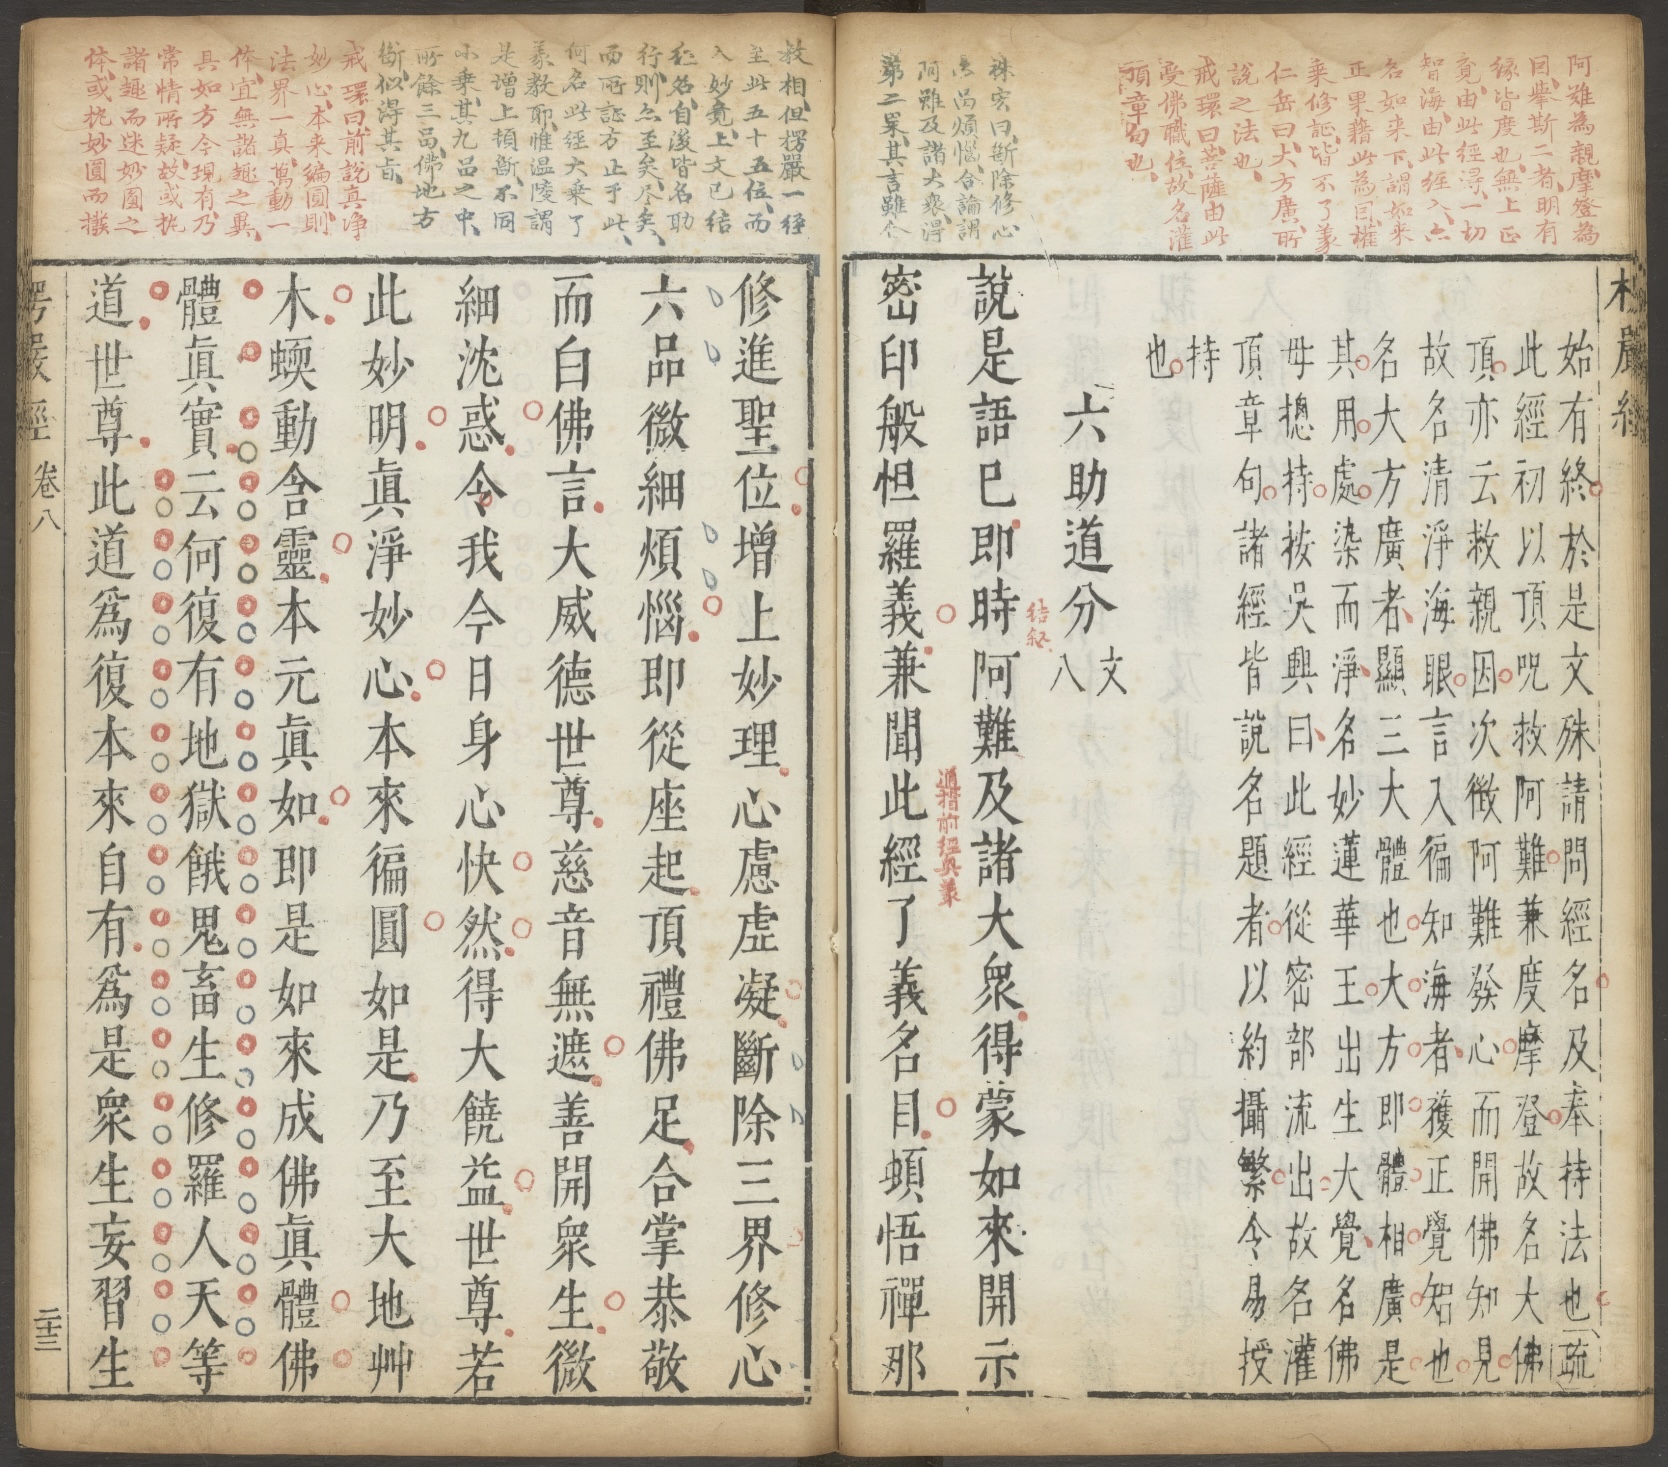 阿難為親摩登為
因舉斯二者明有
緣皆度也無上正
竟由此經得一切
智海由此經入六
名如來下謂如來
正果籍此為因權
乗修証皆不了義
仁岳曰大方廣所
說之法也
戒環曰菩薩由此
受佛職位故名灌
頂章句也
袾宏曰斷除修心
六品煩惱合論謂
阿難及諸大衆得
第二果其言雖今
始有終於是文殊請問經名及奉持法也疏
此經初以頂呪救阿難兼度摩登故名大佛
頂亦云救親因次徵阿難發心而開佛知見
故名清淨海眼言入徧知海者獲正覺知也
名大方廣者顯三大體也大方即體相廣是
其用處染而淨名妙蓮華王出生大覺名佛
母摠持按吳興曰此經從密部流出故名灌
頂章句諸經皆說名題者以約攝繁令易授
持
也
六助道分 文八
說是語已即時阿難及諸大衆得蒙如來開示
結叙
密印般怛羅義兼聞此經了義名目頓悟禪那
通指前經奥義
救相但楞嚴一經
至此五十五位而
入妙竟上文已結
經名自後皆名助
行則亦至矣尽矣
而所証方止于此
何名此經大乗了
義教耶惟温陵謂
是增上頓斷不同
小乗其九品之中
所餘三品佛地方
斷似得其旨
戒環曰前說真淨
妙心本来徧圓則
法界一真萬動一
体宜無諸趣之異
具如方今現有乃
常情所疑故或扼
諸趣而迷妙圓之
体或扼妙圓而撥
修進聖位增上妙理心慮虛凝斷除三界修心
六品微細煩惱即從座起頂禮佛足合掌恭敬
而白佛言大威德世尊慈音無遮善開衆生微
細沈惑令我今日身心快然得大饒益世尊若
此妙明眞淨妙心本來徧圓如是乃至大地艸
木蝡動含靈本元眞如即是如來成佛眞體佛
體眞實云何復有地獄餓鬼畜生修羅人天等
道世尊此道爲復本來自有爲是衆生妄習生
楞嚴經 卷八
二十三